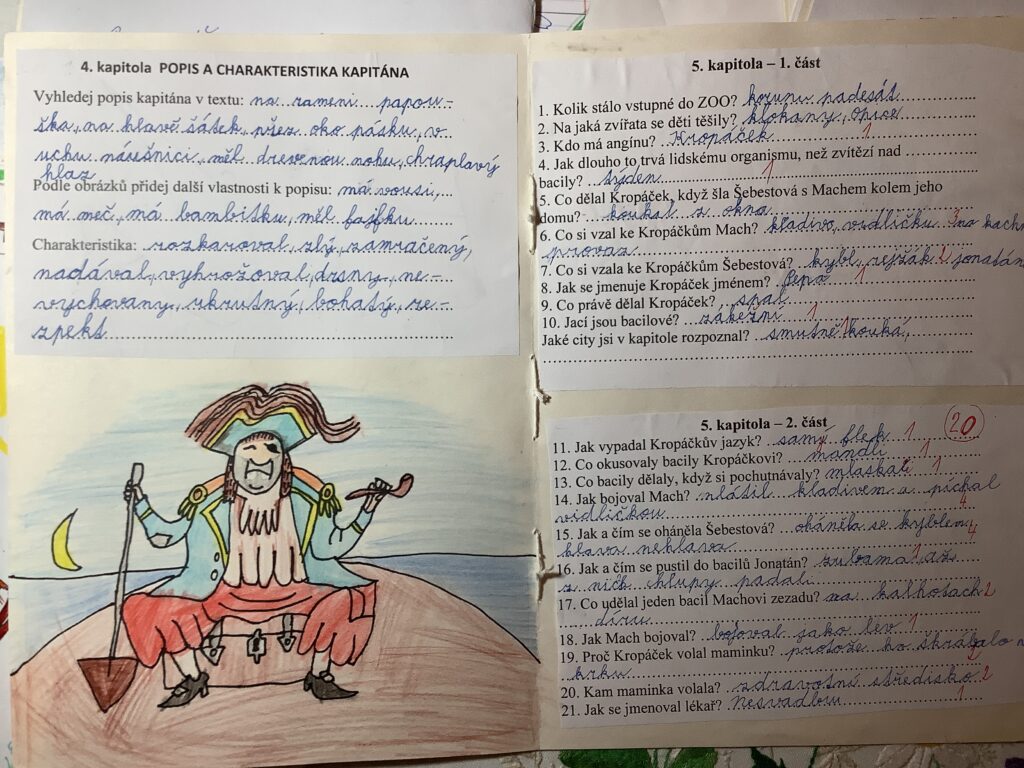 4. kapitola POPIS A CHARAKTERISTIKA KAPITÁNA
Vyhledej popis kapitána v textu: na rameni papou-
ška, na hlavě šátek přez oko pásku, v
uchu náušnici, měl drevenou nohu, chraplavý
hlaz
Podle obrázků přidej další vlastnosti k popisu: má vousi,
má meč, má bambitku, měl fajfku
Charakteristika: rozkazoval, zlý, zamračený,
nadával, vyhrožoval, drsny, ne-
vychovany, ukrutný, bohatý, re-
zpekt
5. kapitola – 1. část
1. Kolik stálo vstupné do ZOO? korunu padesát
2. Na jaká zvířata se děti těšily? klokany, opice
3. Kdo má angínu? Kropáček 1
4. Jak dlouho to trvá lidskému organismu, než zvítězí nad
bacily? týden 1
5. Co dělal Kropáček, když šla Šebestová s Machem kolem jeho
domu? koukal z okna
6. Co si vzal ke Kropáčkům Mach? kladivo, vidličku 3 na
provaz
7. Co si vzala ke Kropáčkům Šebestová? kybl, rejžák 2 jonatán
8. Jak se jmenuje Kropáček jménem? Pepa 1
9. Co právě dělal Kropáček? spal
10. Jací jsou bacilové? zákeřní 1
Jaké city jsi v kapitole rozpoznal? smutně kouká,
5. kapitola – 2. část 20
11. Jak vypadal Kropáčkův jazyk? samý flek 1
12. Co okusovaly bacily Kropáčkovi? mandli 1
13. Co bacily dělaly, když si pochutnávaly? mlaskali 1
14. Jak bojoval Mach? mlátil kladivem a píchal
vidličkou 4
15. Jak a čím se oháněla Šebestová? oháněla se kyblem 4
hlava nehlava
16. Jak a čím se pustil do bacilů Jonatán? zubama 1 až
z nich chlupy padal
17. Co udělal jeden bacil Machovi zezadu? na kalhotach 2
díru
18. Jak Mach bojoval? bojoval jako lev 1
19. Proč Kropáček volal maminku? protože ho škrábalo
krku
20. Kam maminka volala? zdravotní středisko 2
21. Jak se jmenoval lékař? Nesvadbou 1